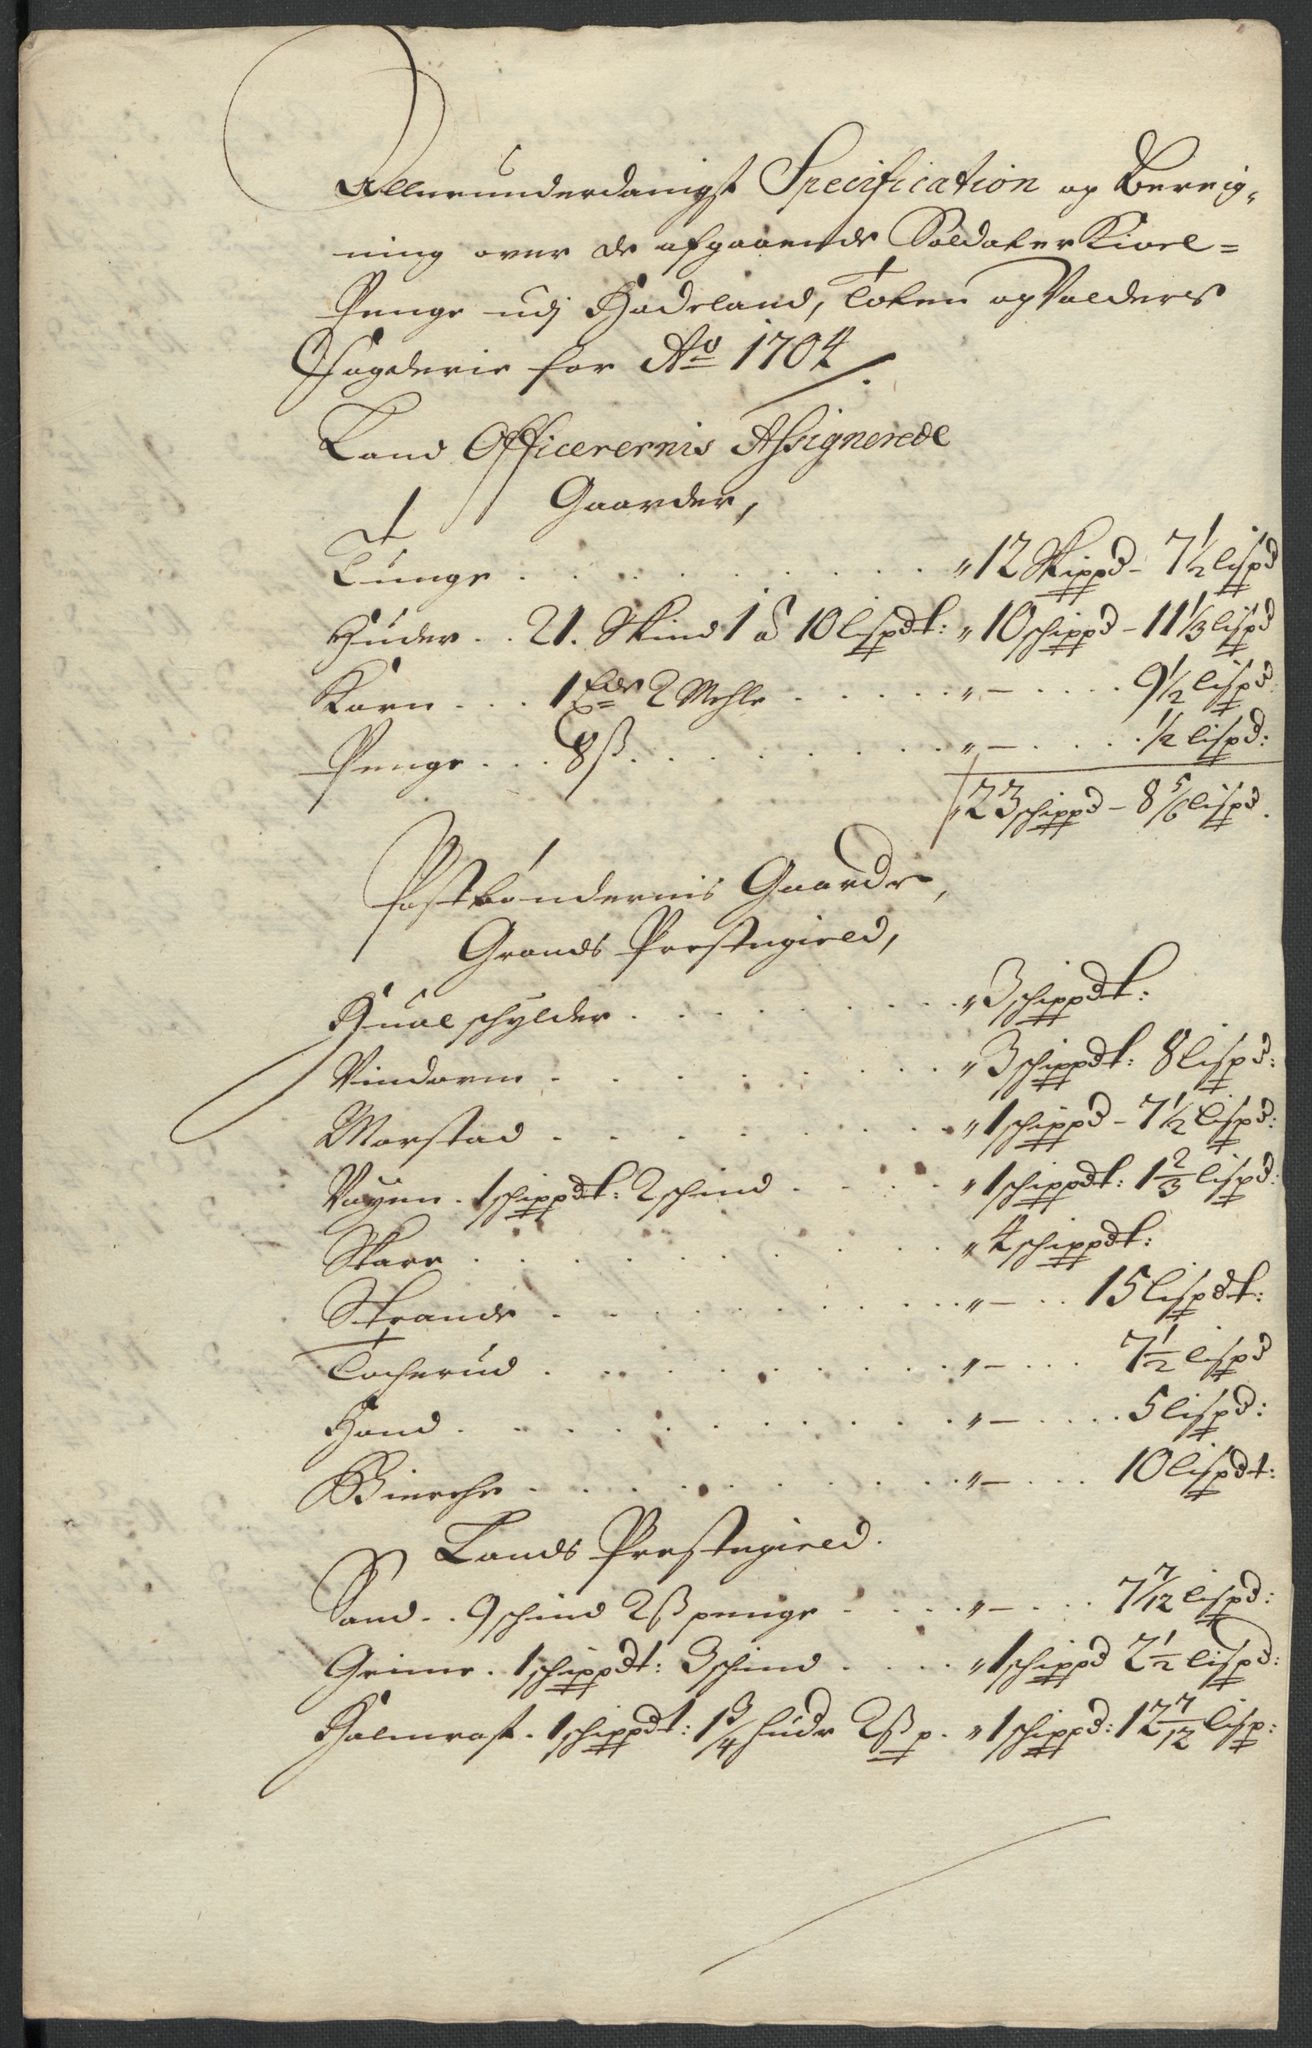 Allerunderdanigst Specification og Bereig,
ning over de afgaaende Soldater Kiøel=
Penge udj Hadeland, Toten og Valders
Fogderie for Ao 1704
Land Officerernis Assignerede
Gaarder,
Tunge . . . . . . . . " 12 Skippd - 7 1/2 lispd
Huder . . 21. Skind 1 a 10 lispdt: " 10 schippd - 11 1/3 lispd
Korn . . . 1 2 Mehle . . . . . " - . . . . 9 1/2 lispd:
Penge . . . 8 ß . . . . . . . " - . . . . 1/2 lispd:
23 schippd - 8 5/6 lispd.
Postbøndernis Gaarde,
Grands Prestegield,
Hualschylder . . . . . . . " 3 schippdt:
Vindorm . . . . . . . . " 3 schippdt: 8 lispd:
Morstad . . . . . . . . " 1 schippd - 7 1/2 lispd:
Vøyen . 1 schippdt: 2 schind . . . . " 1 schippdt: 1 2/3 lispd:
Skare . . . . . . . . . " 4 schippdt:
Strande . . . . . . . . " - . . 15 lispdt:
Tocherud . . . . . . . . " - . . . 7 1/2 lispd
Hond . . . . . . . . . " - . . . . 5 lispd:
Bierche . . . . . . . . " - . . . 10 lispdt:
Lands Prestegield.
Sand . . 9 schind 2 ß penge . . . . " - . . . 7 7/12 lispd:
Grime . 1 schippdt: 3 schind . . . . " 1 schippd 2 1/2 lispd:
Halmrast . 1 schippdt: 1 3/4 hude 2 ß p . " 1 schippd: 12 7/12 lisp: